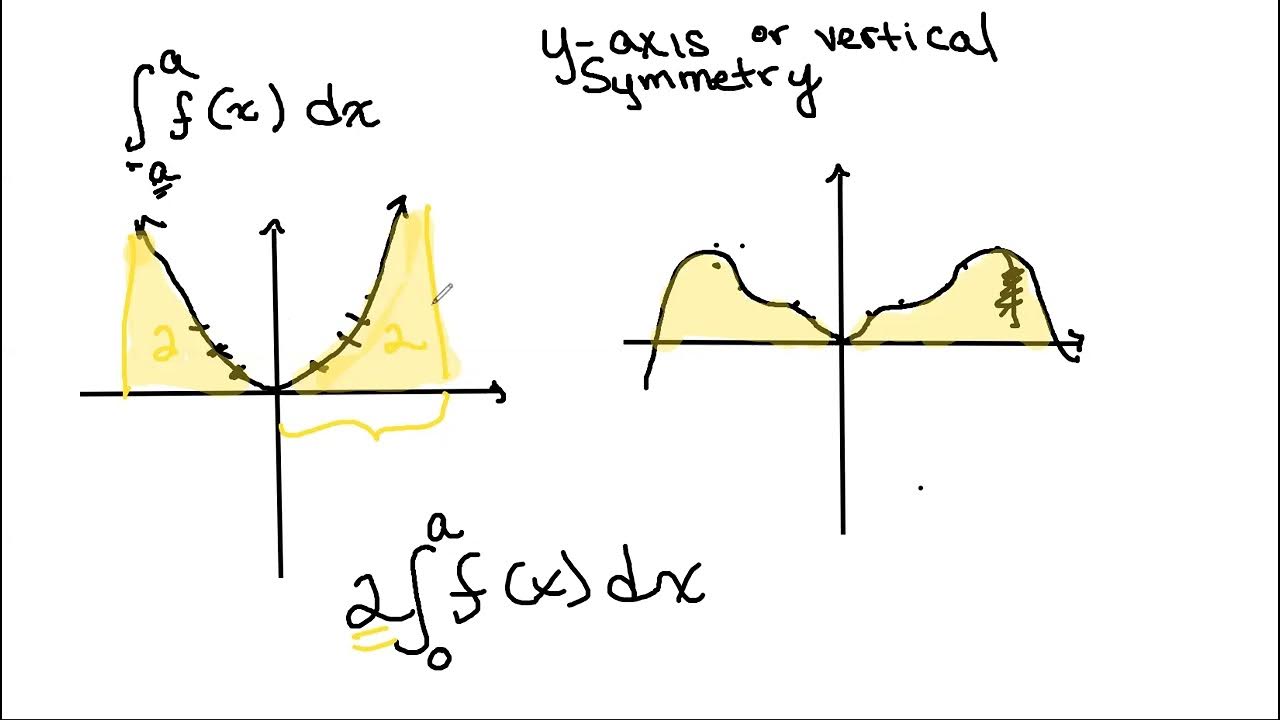 y-axis or vertical
symmetry
∫_{-a}^{a} f(x) dx
2 2
2∫_{0}^{a} f(x) dx